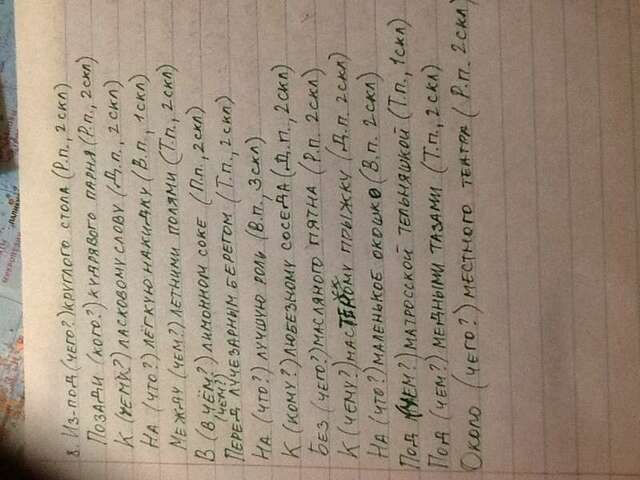 8. Из-под (чего?) круглого стола (Р.п., 2скл)
Позади (кого?) кудрявого парня (Р.п., 2скл)
К (чему?) ласковому слову (Д.п., 2скл)
На (что?) лёгкую накидку (В.п., 1скл)
Между (чем?) летними полями (Т.п., 2скл)
В (в чём?) лимонном соке (П.п., 2скл)
(чем?)
Перед лучезарным берегом (Т.п., 2скл)
На (что?) лучшую роль (В.п., 3скл)
К (кому?) любезному соседа (Д.п., 2скл)
Без (чего?) масляного пятна (Р.п. 2скл)
К (чему?) прыжку (Д.п. 2скл)
На (что?) маленькое окошко (В.п. 2скл)
Под (чем?) матросской тельняшкой (Т.п., 1скл)
Под (чем?) медными тазами (Т.п., 2скл)
Около (чего?) местного театра (Р.п. 2скл)